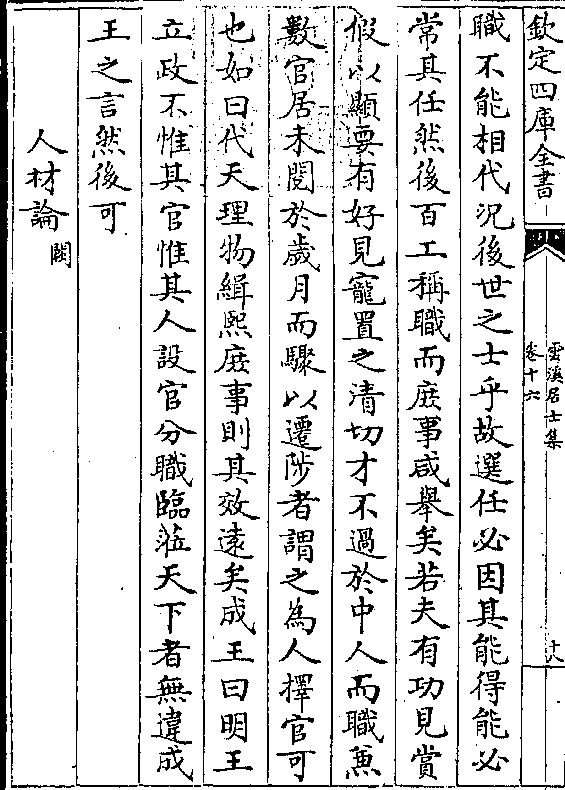 欽定四庫全書
雲溪居士集
卷十六
十八
職不能相代況後世之士乎故選任必因其能得能必
常其任然後百工稱職而庶事咸舉矣若夫有功見賞
假以顯要有好見寵置之清切才不過於中人而職兼
數官居未閱於歲月而驟以遷陟者謂之為人擇官可
也如曰代天理物緝熙庶事則其效遠矣成王曰明王
立政不惟其官惟其人設官分職臨蒞天下者無違成
王之言然後可
人材論闕